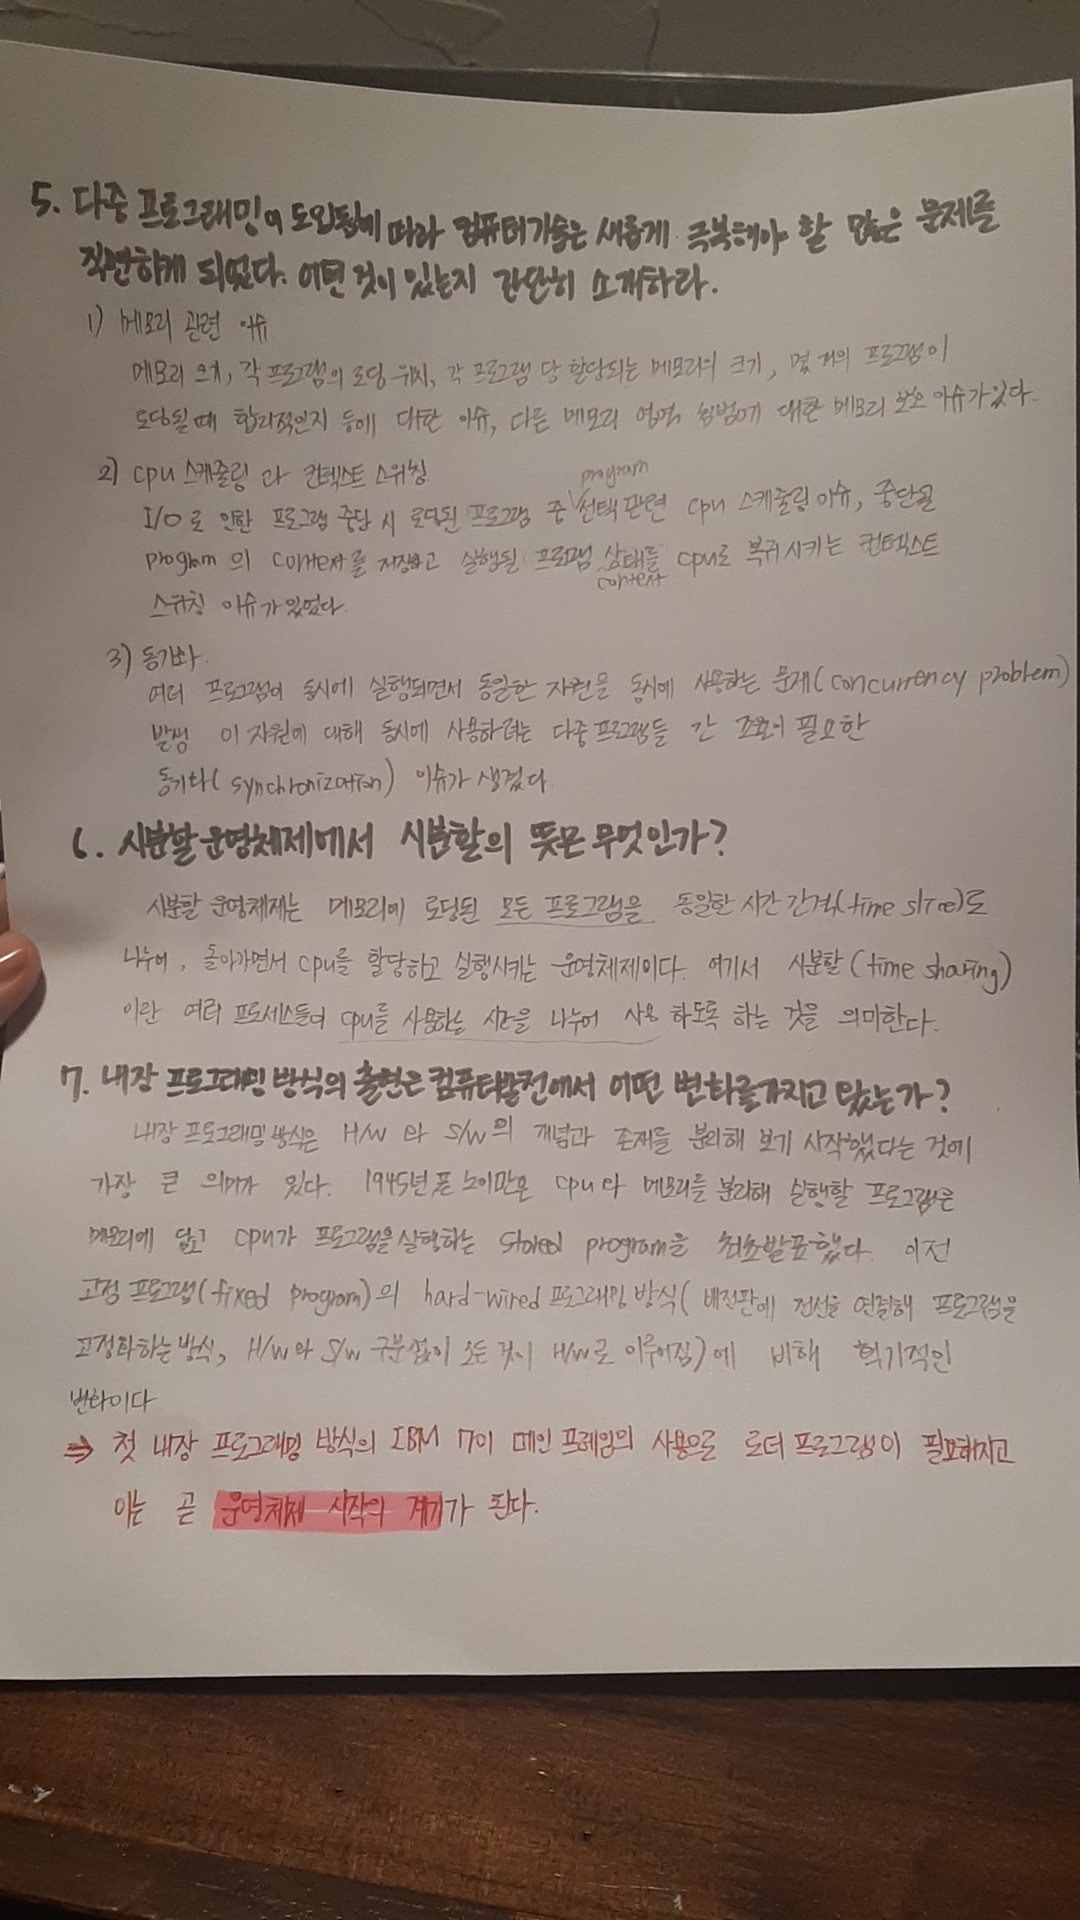 5. 다중 프로그래밍이 도입됨에 따라 컴퓨터기술은 새롭게 극복해야 할 많은 문제를
직면하게 되었다. 어떤 것이 있는지 간단히 소개하라.
1) 메모리 관련 이슈
메모리 크기, 각 프로그램의 로딩 위치, 각 프로그램 당 할당되는 메모리의 크기, 몇 개의 프로그램이
로딩될 때 합리적인지 등에 대한 이슈, 다른 메모리 영역 침범에 대한 메모리 보호 이슈가 있다.
2) cpu 스케줄링 과 컨텍스트 스위칭
program
I/O로 인한 프로그램 중단 시 로딩된 프로그램 중 선택 관련 cpu 스케줄링 이슈, 중단될
program의 context를 저장하고 실행될 프로그램 상태를 cpu로 복귀시키는 컨텍스트
context
스위칭 이슈가 있었다
3) 동기화.
여러 프로그램이 동시에 실행되면서 동일한 자원을 동시에 사용하는 문제(concurrency problem)
발생 이 자원에 대해 동시에 사용하려는 다중프로그램들 간 조율이 필요한
동기화(synchronization) 이슈가 생겼다.
6. 시분할 운영체제에서 시분할의 뜻은 무엇인가?
시분할 운영체제는 메모리에 로딩된 모든 프로그램을 동일한 시간 간격(time slice)로
나누어, 돌아가면서 cpu를 할당하고 실행시키는 운영체제이다. 여기서 시분할(time sharing)
이란 여러 프로세스들이 cpu를 사용하는 시간을 나누어 사용 하도록 하는 것을 의미한다.
7. 내장 프로그래밍 방식의 출현은 컴퓨터발전에서 어떤 변화를 가지고 왔는가?
내장 프로그래밍 방식은 H/w 와 S/w의 개념과 존재를 분리해 보기 시작했다는 것에
가장 큰 의미가 있다. 1945년 폰 노이만은 cpu와 메모리를 분리해 실행할 프로그램은
메모리에 담고 cpu가 프로그램을 실행하는 stored program을 최초발표했다. 이전
고정 프로그램(fixed program)의 hard-wired 프로그래밍 방식(배전판에 전선을 연결해 프로그램을
고정화하는 방식, H/w와 S/w 구분없이 모든 것이 H/w로 이루어짐)에 비해 획기적인
변화이다
⇒ 첫 내장 프로그래밍 방식의 IBM 701 메인 프레임의 사용으로 로더 프로그램이 필요해지고
이는 곧 운영체제 시작의 계기가 된다.